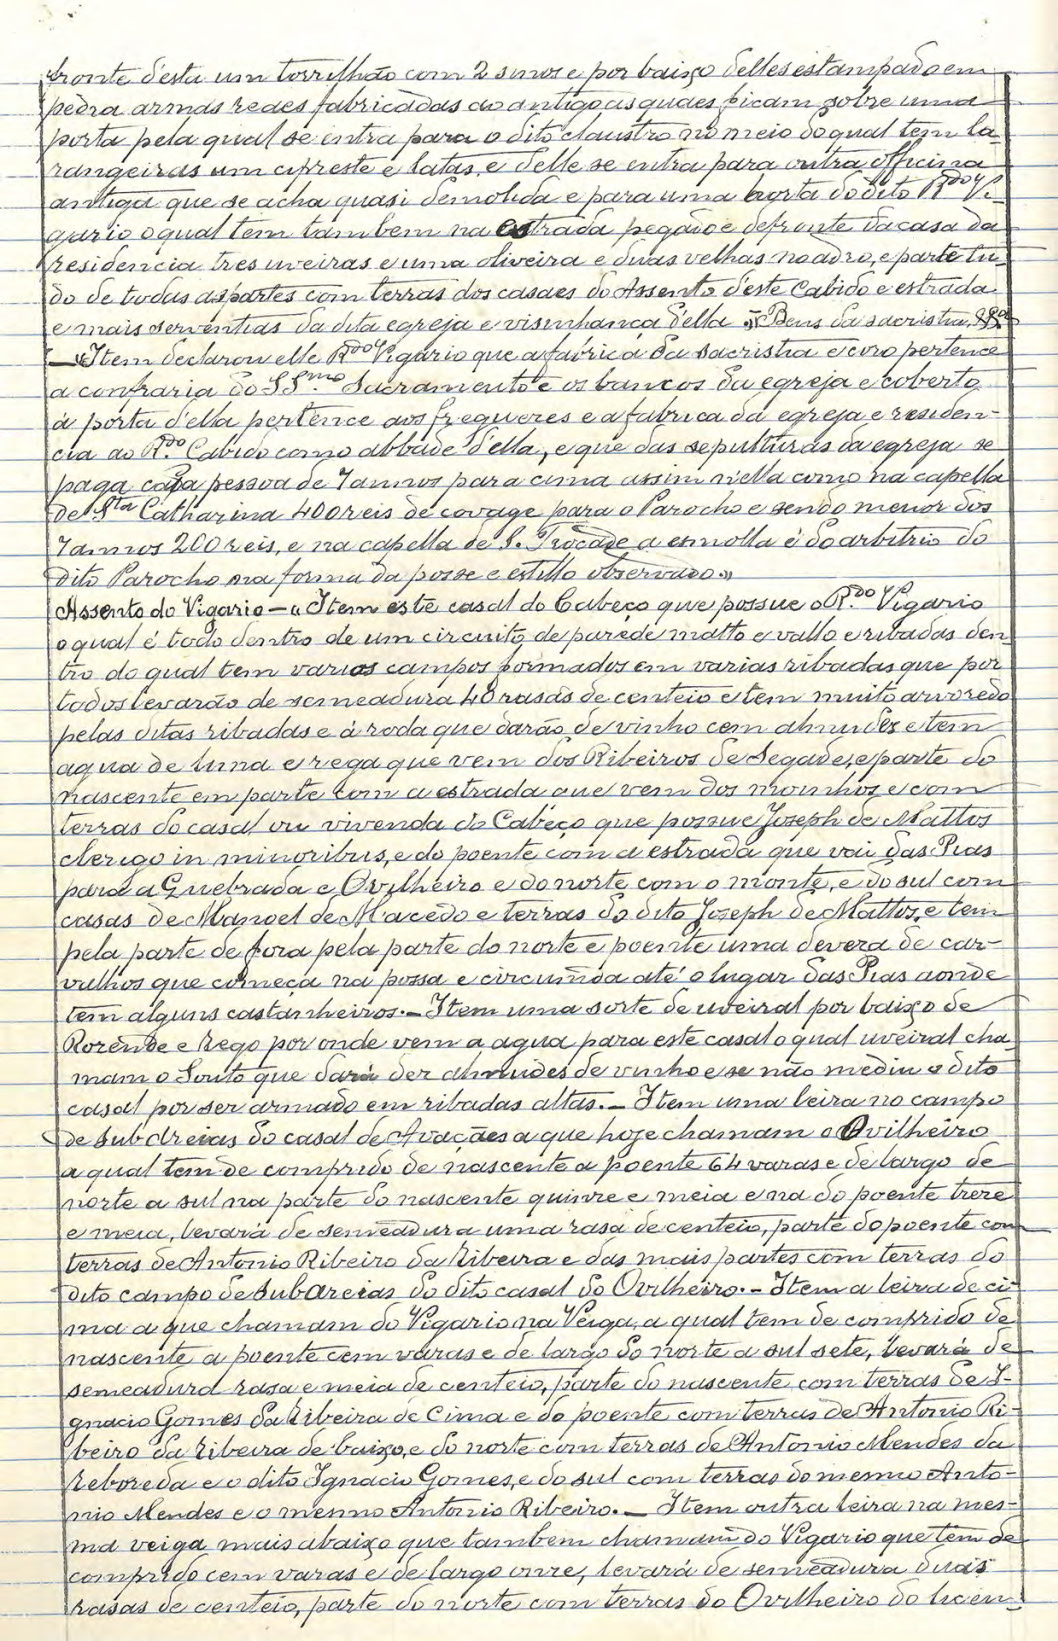 fronte d'esta um torrilhão com 2 sinos e por baixo delles estampado em
pedra armas reaes fabricadas ao antigo as quaes ficam sobre uma
porta pela qual se entra para o dito claustro no meio do qual tem la-
rangeiras um cipreste e latas, e delle se entra para outra officina
antiga que se acha quasi demolida e para uma horta do dito R.do Vi-
gario o qual tem tambem na estrada pegado e defronte da casa da
residencia tres uveiras e uma oliveira e duas velhas no adro, e parte tu-
do de todas as partes com terras dos casaes do Assento d'este Cabido e estrada
e mais serventias da dita egreja e visinhança d'ella » Bens da sacristia,
— «Item declarou elle R.do Vigario que a fabrica da sacristia e coro pertence
a confraria do SS.mo Sacramento e os bancos da egreja e coberto
á porta d'ella pertence aos freguezes e a fabrica da egreja e residen-
cia ao R.do Cabido como abbade d'ella, e que das sepulturas da egreja se
paga cada pessoa de 7 annos para cima assim n'ella como na capella
de S.ta Catharina 400 reis de covage para o Parocho e sendo menor dos
7 annos 200 reis, e na capella de S. Trocade a esmolla é do arbitrio do
dito Parocho na forma da posse e estillo observado.»
Assento do Vigario — «Item este casal do Cabeço que possue o R.do Vigario
o qual é todo dentro de um circuito de parede matto e vallo e ribadas den-
tro do qual tem varios campos formados em varias ribadas que por
todos levarão de semeadura 40 rasas de centeio e tem muito arvoredo
pelas ditas ribadas e á roda que darão de vinho cem almudes e tem
agua de lima e rega que vem dos Ribeiros de Segade, e parte do
nascente em parte com a estrada que vem dos moinhos e com
terras do casal ou vivenda do Cabeço que possue Joseph de Mattos
clerigo in minoribus, e do poente com a estrada que vai das Pias
para a Quebrada e Ovilheiro e do norte com o monte, e do sul com
casas de Manoel de Macedo e terras do dito Joseph de Mattos, e tem
pela parte de fora pela parte do norte e poente uma deveza de car-
valhos que começa na possa e circumda até o lugar das Pias aonde
tem alguns castanheiros. — Item uma sorte de uveiral por baixo de
Rozende e rego por onde vem a agua para este casal o qual uveiral cha-
mam o Souto que dará dez almudes de vinho e se não mediu o dito
casal por ser armado em ribadas altas. — Item uma leira no campo
de Subareias do casal de Avações a que hoje chamam o Ovilheiro
a qual tem de comprido de nascente a poente 64 varas e de largo de
norte a sul na parte do nascente quinze e meia e na do poente treze
e meia, levará de semeadura uma rasa de centeio, parte do poente com
terras de Antonio Ribeiro da Ribeira e das mais partes com terras do
dito campo de Subareias do dito casal do Ovilheiro. — Item a leira de ci-
ma a que chamam do Vigario na Veiga, a qual tem de comprido de
nascente a poente cem varas e de largo do norte a sul sete, levará de
semeadura rasa e meia de centeio, parte do nascente com terras de I-
gnacio Gomes da Ribeira de Cima e do poente com terras de Antonio Ri-
beiro da Ribeira de baixo, e do norte com terras de Antonio Mendes da
Reboreda e o dito Ignacio Gomes, e do sul com terras do mesmo Anto-
nio Mendes e o mesmo Antonio Ribeiro. — Item outra leira na mes-
ma veiga mais abaixo que tambem chamam do Vigario que tem de
comprido cem varas e de largo onze, levará de semeadura duas
rasas de centeio, parte do norte com terras do Ovilheiro do licen-